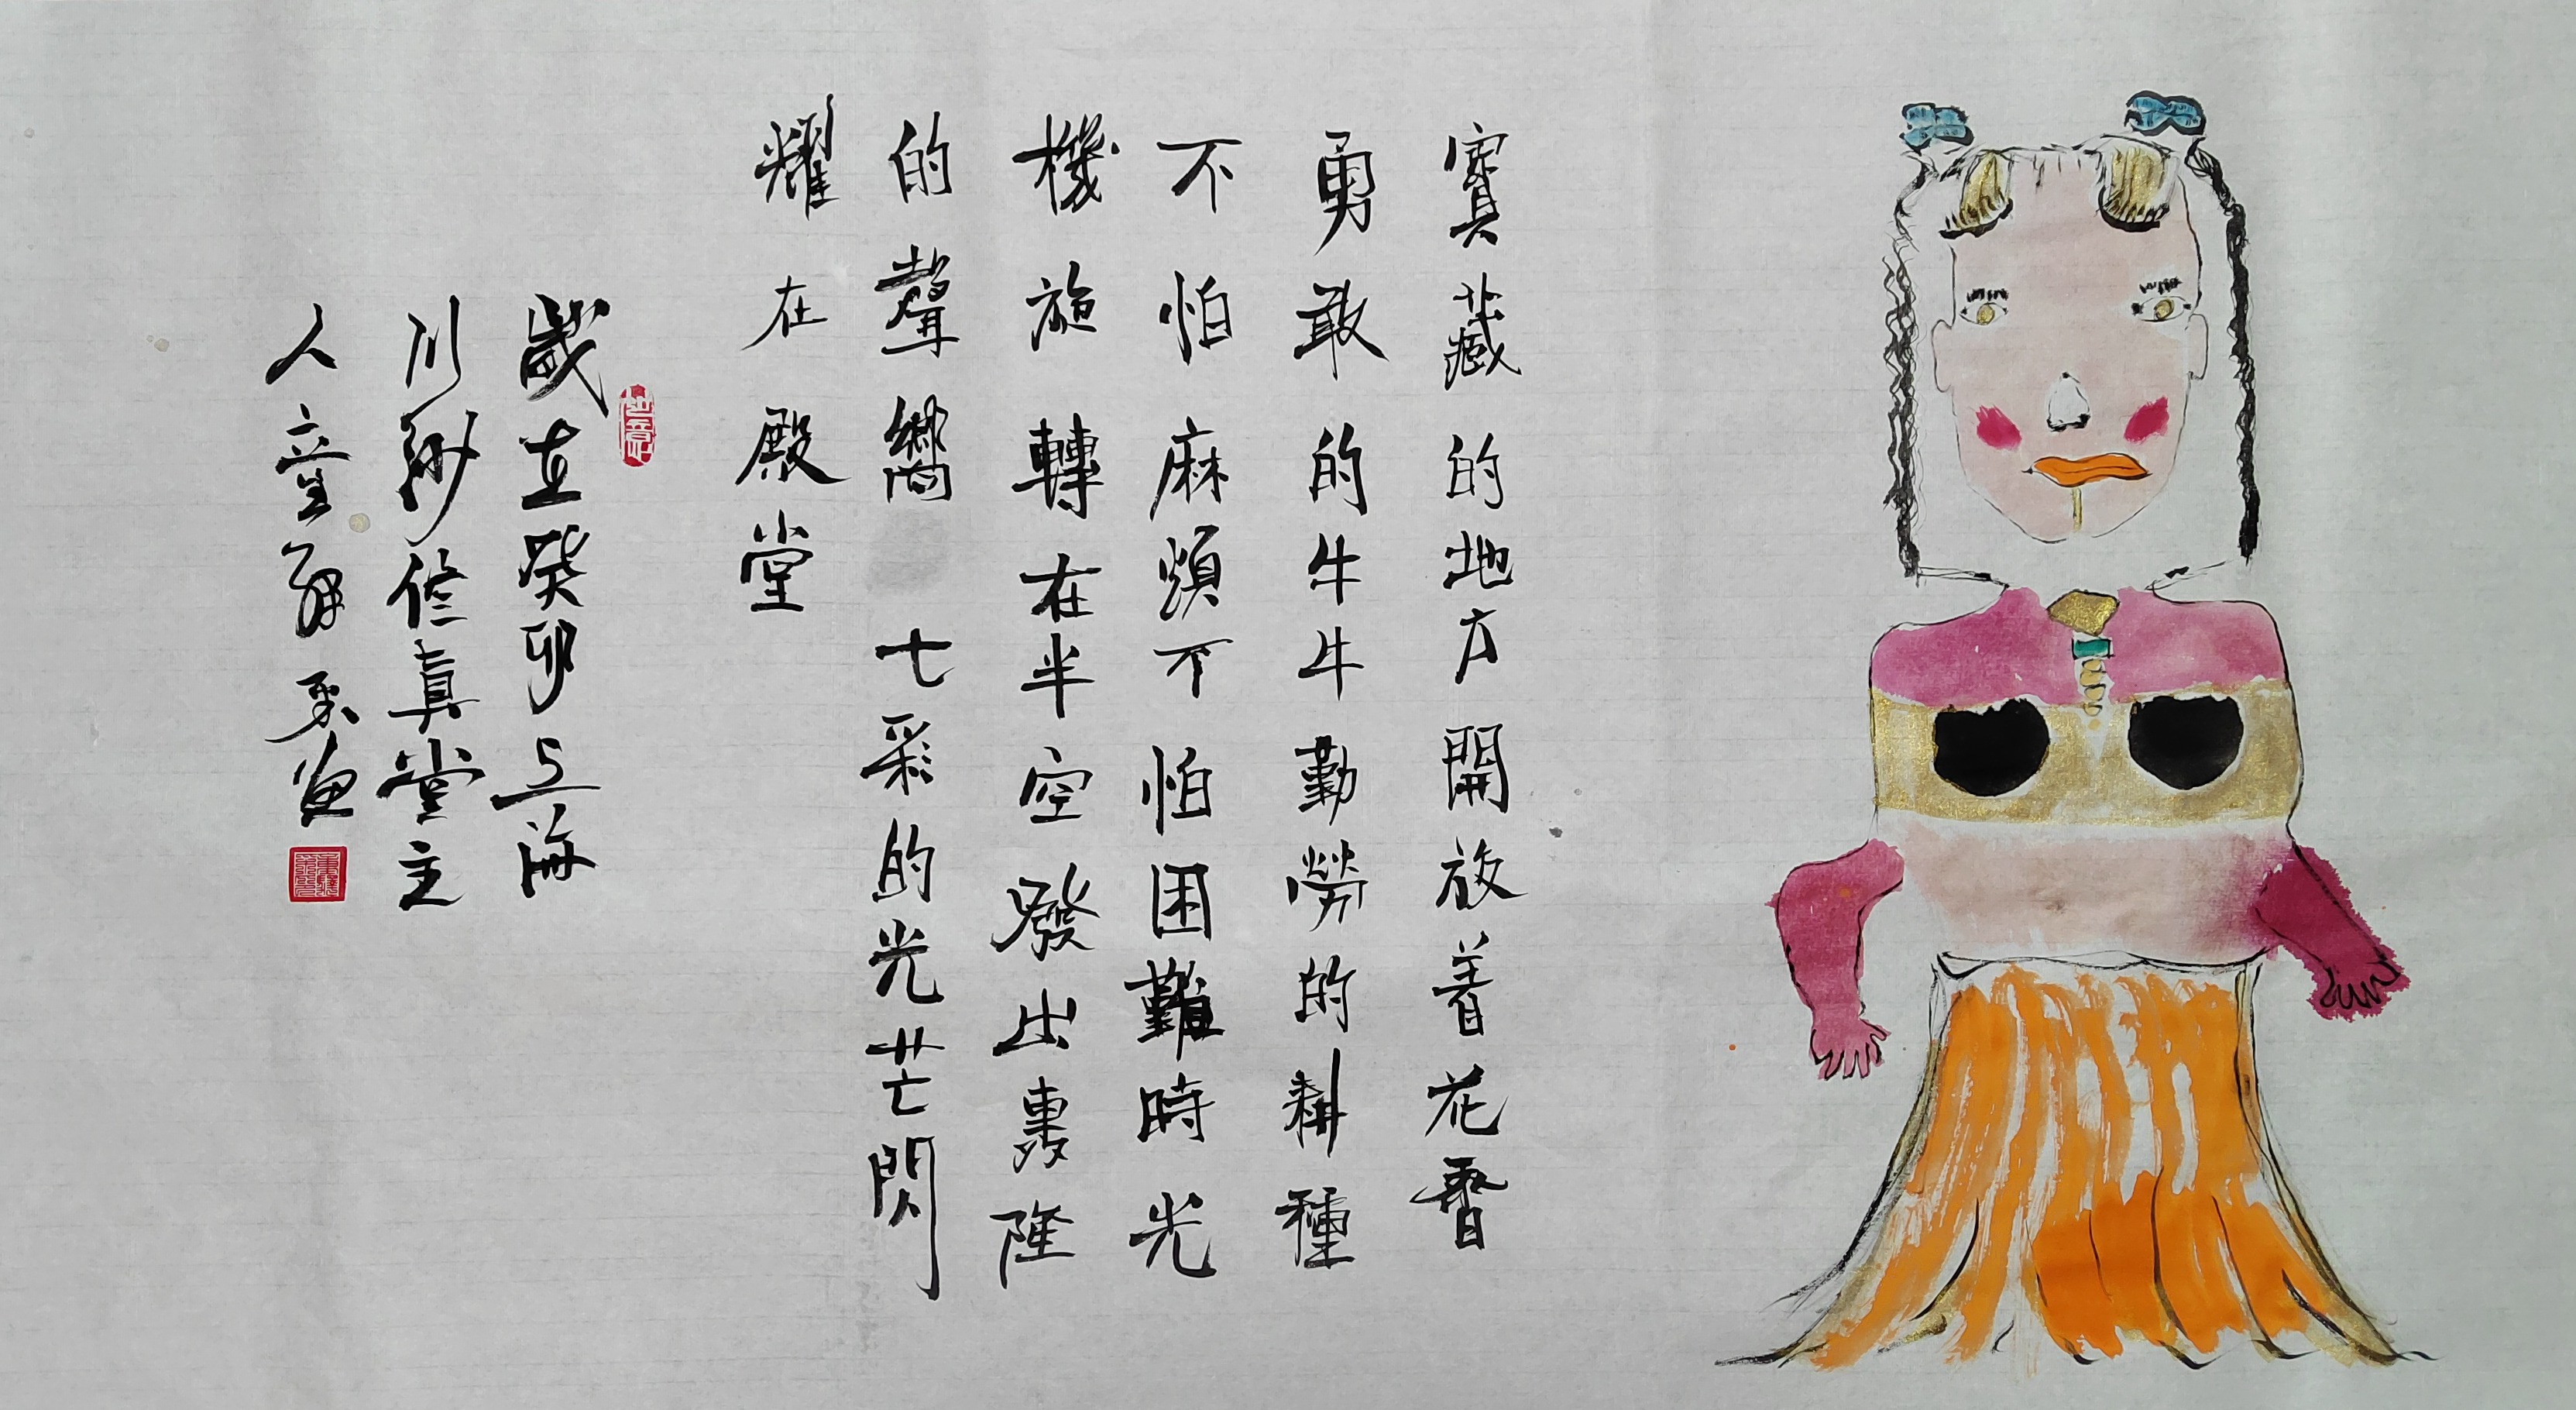 寶藏的地方開放着花香
勇敢的牛牛勤勞的耕種
不怕麻煩不怕困難時光
機旋轉在半空發出轟隆
的聲嚮七彩的光芒閃
耀在殿堂
歲在癸卯上海
川沙修真堂主
人童